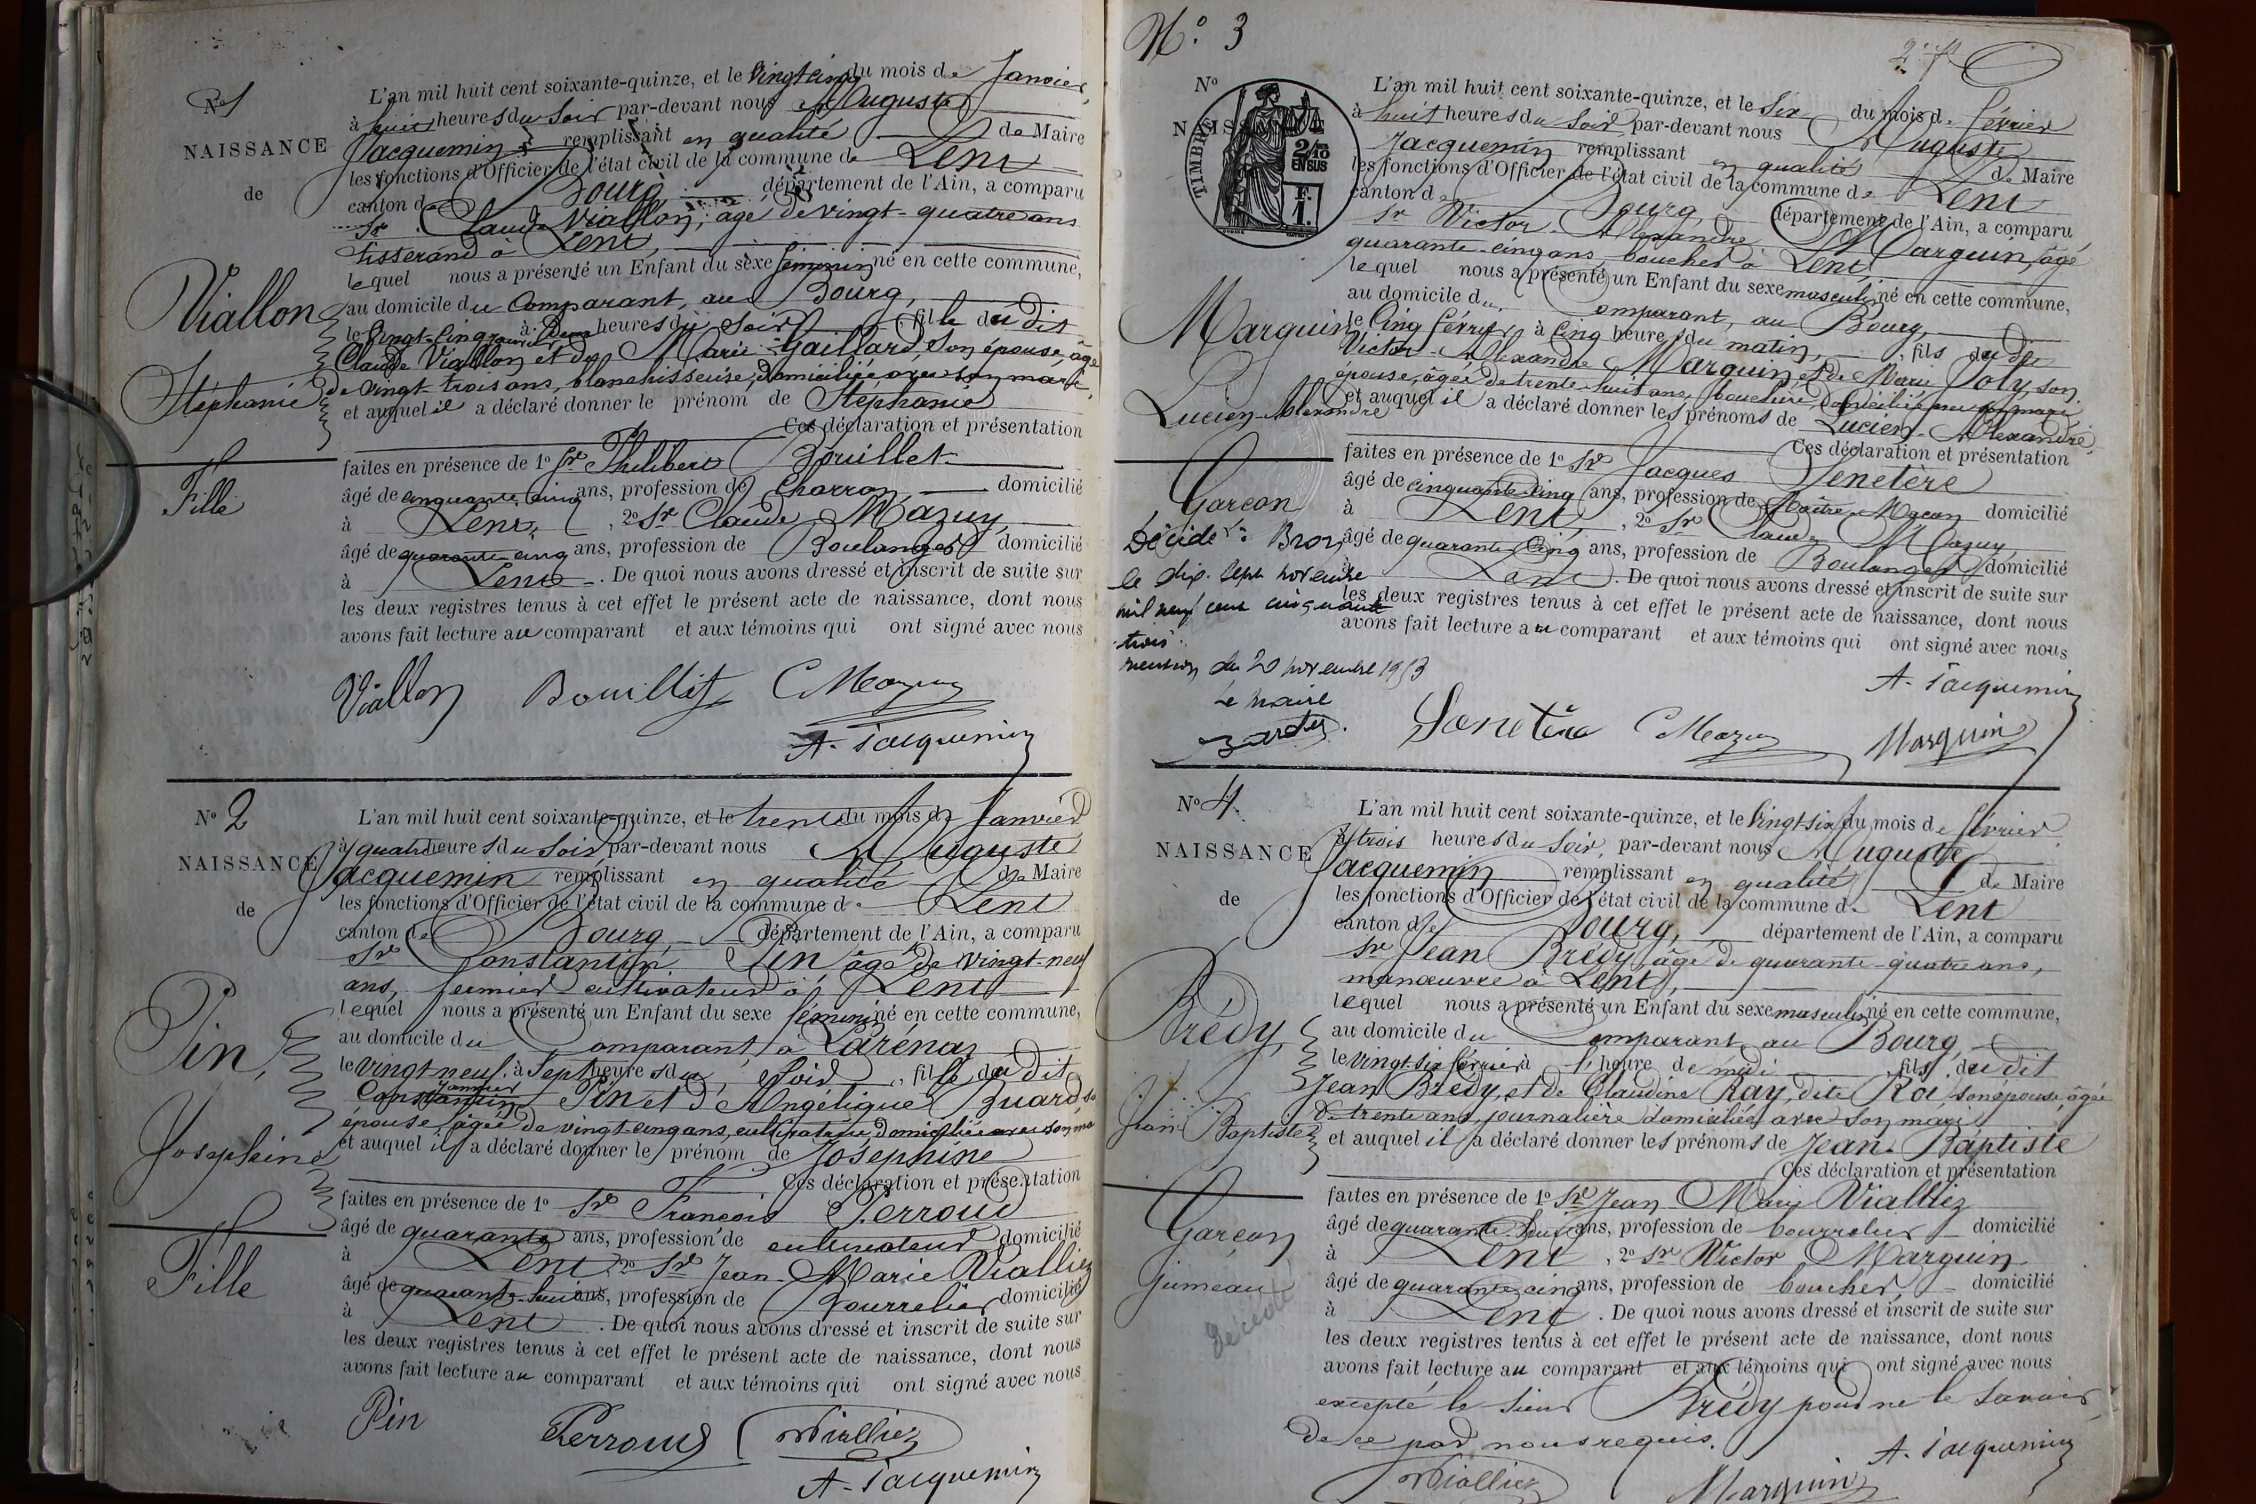 No 1
NAISSANCE
de
Viallon
Stéphanie
Fille
L'an mil huit cent soixante-quinze, et le vingt cinq du mois de Janvier,
à huit heures du soir par-devant nous Auguste
Jacquemin remplissant en qualité de Maire
les fonctions d'Officier de l'état civil de la commune de Lent
canton de Bourg département de l'Ain, a comparu
Sr Claude Viallon, âgé de vingt-quatre ans
tisserand à Lent,
lequel nous a présenté un Enfant du sexe féminin né en cette commune,
au domicile du Comparant, au Bourg,
le vingt-cinq janvier à deux heures du soir, fille du dit
Claude Viallon et de Marie Gaillard, son épouse, âgée
de vingt-trois ans, blanchisseuse, domiciliée avec son mari,
et auquel il a déclaré donner le prénom de Stéphanie
Ces déclaration et présentation
faites en présence de 1o Sr Philibert Bouillet
âgé de cinquante cinq ans, profession de Charron domicilié
à Lent, 2o Sr Claude Mazuy,
âgé de quarante-cinq ans, profession de Boulanger domicilié
à Lent. De quoi nous avons dressé et inscrit de suite sur
les deux registres tenus à cet effet le présent acte de naissance, dont nous
avons fait lecture au comparant et aux témoins qui ont signé avec nous
Viallon Bouillet C Mazuy
A. Jacquemin
No 2
NAISSANCE
de
Pin,
Joséphine
Fille
L'an mil huit cent soixante-quinze, et le trente du mois de Janvier
à quatre heures du soir, par-devant nous Auguste
Jacquemin remplissant en qualité de Maire
les fonctions d'Officier de l'état civil de la commune de Lent
canton de Bourg, département de l'Ain, a comparu
Sr Constantin Pin âgé de vingt-neuf
ans, fermier cultivateur à Lent
lequel nous a présenté un Enfant du sexe féminin né en cette commune,
au domicile du Comparant, à Larénas
le vingt neuf janvier à sept heures du soir, fille du dit
Constantin Pin et d'Angélique Buard, sa
épouse, âgée de vingt-cinq ans, cultivateur domiciliée avec son ma
et auquel il a déclaré donner le prénom de Joséphine
Ces déclaration et présentation
faites en présence de 1o Sr François Perroud
âgé de quarante ans, profession de cultivateur domicilié
à Lent 2o Sr Jean-Marie Viallier
âgé de quarante-huit ans, profession de Bourrelier domicilié
à Lent. De quoi nous avons dressé et inscrit de suite sur
les deux registres tenus à cet effet le présent acte de naissance, dont nous
avons fait lecture au comparant et aux témoins qui ont signé avec nous
Pin Perroud Viallier
A. Jacquemin
No. 3
No
NAISS
TIMBRE
2/10
EN SUS
F.
1.
Marguin
Lucien-Alexandre
Garçon
Décidé à Bron
le dix-sept novembre
mil neuf cent cinquante
trois.
mention du 20 novembre 1953
Le maire
L'an mil huit cent soixante-quinze, et le Six du mois de février
à huit heures du soir par-devant nous Auguste
Jacquemin remplissant en qualité de Maire
les fonctions d'Officier de l'état civil de la commune de Lent
canton de Bourg, département de l'Ain, a comparu
Sr Victor-Alexandre Marguin, âgé
quarante-cinq ans, boucher à Lent,
lequel nous a présenté un Enfant du sexe masculin né en cette commune,
au domicile du Comparant, au Bourg,
le cinq février à cinq heures du matin, fils du dit
Victor-Alexandre Marguin et de Marie Joly, son
épouse, âgée de trente-huit ans, bouchère, domiciliée avec son mari
et auquel il a déclaré donner les prénoms de Lucien-Alexandre,
Ces déclaration et présentation
faites en présence de 1o Sr Jacques Senetère
âgé de cinquante-cinq ans, profession de Maître-Maçon domicilié
à Lent, 2o Sr Claude Mazuy,
âgé de quarante-cinq ans, profession de Boulanger domicilié
à Lent. De quoi nous avons dressé et inscrit de suite sur
les deux registres tenus à cet effet le présent acte de naissance, dont nous
avons fait lecture au comparant et aux témoins qui ont signé avec nous
A. Jacquemin
Senetère C Mazuy Marguin
No 4.
NAISSANCE
de
Brédy,
Jean Baptiste
Garçon
jumeau
décédé
L'an mil huit cent soixante-quinze, et le vingt-six du mois de février
à trois heures du soir, par-devant nous Auguste
Jacquemin remplissant en qualité de Maire
les fonctions d'Officier de l'état civil de la commune de Lent
canton de Bourg, département de l'Ain, a comparu
Sr Jean Brédy, âgé de quarante-quatre ans,
manœuvre à Lent,
lequel nous a présenté un Enfant du sexe masculin né en cette commune,
au domicile du Comparant, au Bourg,
le vingt-six février à l'heure de midi, fils du dit
Jean Brédy, et de Claudine Ray, dite Roi, son épouse, âgée
de trente ans, journalière domiciliée avec son mari,
et auquel il a déclaré donner les prénoms de Jean-Baptiste
Ces déclaration et présentation
faites en présence de 1o Sr Jean Mary Viallier
âgé de quarante-huit ans, profession de bourrelier domicilié
à Lent, 2o Sr Victor Marguin
âgé de quarante cinq ans, profession de boucher, domicilié
à Lent. De quoi nous avons dressé et inscrit de suite sur
les deux registres tenus à cet effet le présent acte de naissance, dont nous
avons fait lecture au comparant et aux témoins qui ont signé avec nous
excepté le sieur Brédy pour ne le savoir,
de ce par nous requis.
A. Jacquemin
Viallier Marguin